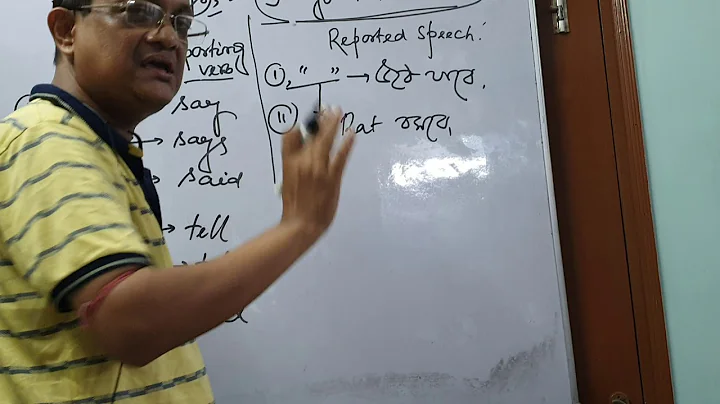 Reported Speech:
porting
verb
① , " " → উঠে যাবে.
say
⑪ that বসবে,
says
said
tell